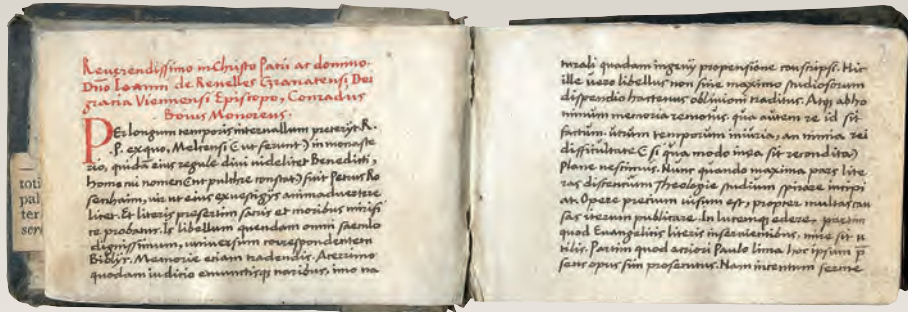 Reuerendissimo in Christo Patri ac domino.
Dno Ioanni de Reuelles Granatensi Dei
gratia Viennensi Episcopo, Conradus
Boius Monoreus.
PEr longum temporis interuallum preterijt R.
P. ex quo, Melcensi (ut ferunt) in monaste
rio, quidã eius regule diui uidelicet Benedicti,
homo cui nomen (ut pulchre constat) fuit Petrus Ro
senhaim, uir ut eius ex uestigijs animaduertere
licet. Et literis presertim sacris et moribus mirifi
ce probatus. Is libellum quendam omni saeculo
dignissimum, uniuersum correspondentem
Biblijs. Memorie etiam tradendis. Acerrimo
quodam iudicio emunctisq naribus, imo na
turali quadam ingenij propensione conscripsit. Hic
ille uero libellus non sine maximo studiosorum
dispendio hactenus obliuioni traditus. Atq ab ho
minum memoria remotus. qua autem re id sit
factum. utrum temporum iniuria, an nimia rei
difficultate (Et si qua modo in ea sit recondita)
Plane nescimus. Nunc quando maxima pars lite
ras discentium Theologie studium spirare incipi
at. Opere precium uisum est, propter multas cau
sas iterum publicare. In lucemq edere, partim
quod Euangelijs literis inseruientibus, mire sit u
tilis. Partim quod acriori Paulo lima hoc ipsum p̄
sens opus sim prosecutus. Nam incentum ferme
toti
pal
ter